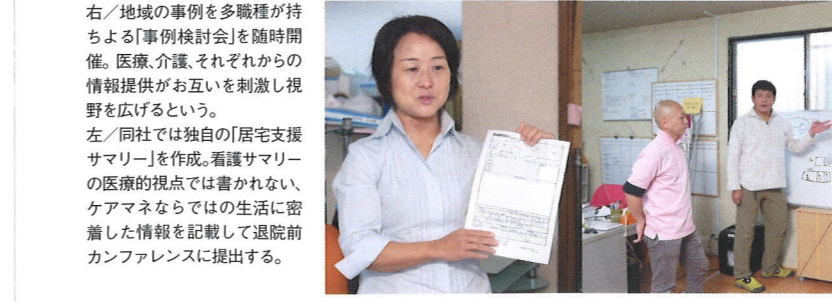 右／地域の事例を多職種が持
ちよる「事例検討会」を随時開
催。医療、介護、それぞれからの
情報提供がお互いを刺激し視
野を広げるという。
左／同社では独自の「居宅支援
サマリー」を作成。看護サマリー
の医療的視点では書かれない、
ケアマネならではの生活に密
着した情報を記載して退院前
カンファレンスに提出する。